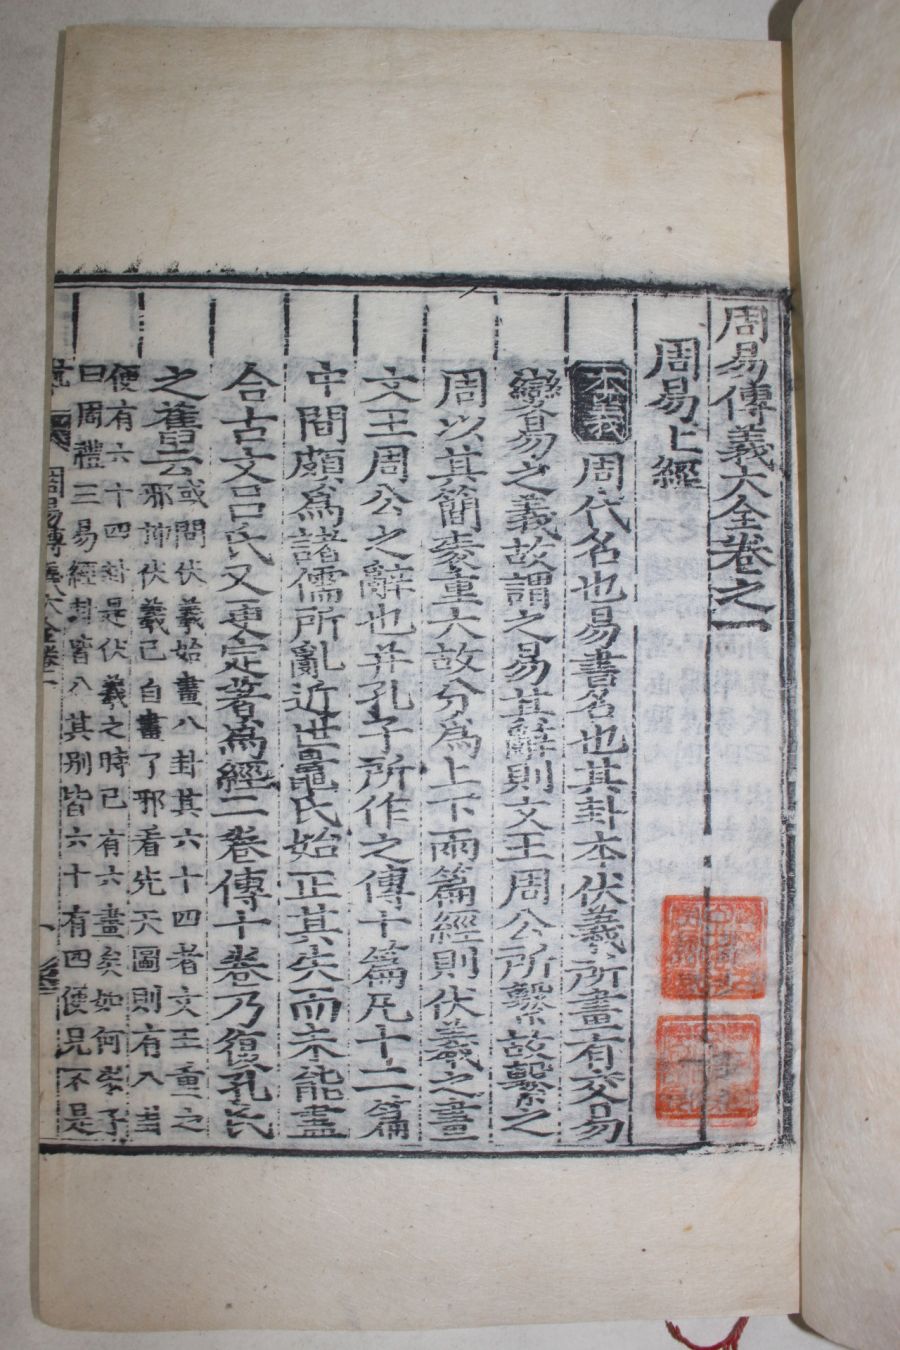 周易傳義大全卷之一
周易上經
本義 周代名也易書名也其卦本伏羲所畫有交易
變易之義故謂之易其辭則文王周公所繫故繫之
周以其簡袠重大故分爲上下兩篇經則伏羲之畫
文王周公之辭也幷孔子所作之傳十篇凡十二篇
中間頗爲諸儒所亂近世晁氏始正其失而未能盡
合古文呂氏又更定著爲經二卷傳十卷乃復孔氏
之舊云
或問伏羲始畫八卦其六十四者文王重之
邪抑伏羲已自畫了邪看先天圖則有八當
便有六十四卦是伏羲之時已有六畫矣如何
曰周禮三易經卦皆八其別皆六十有四便見不是
周易傳義大全卷一